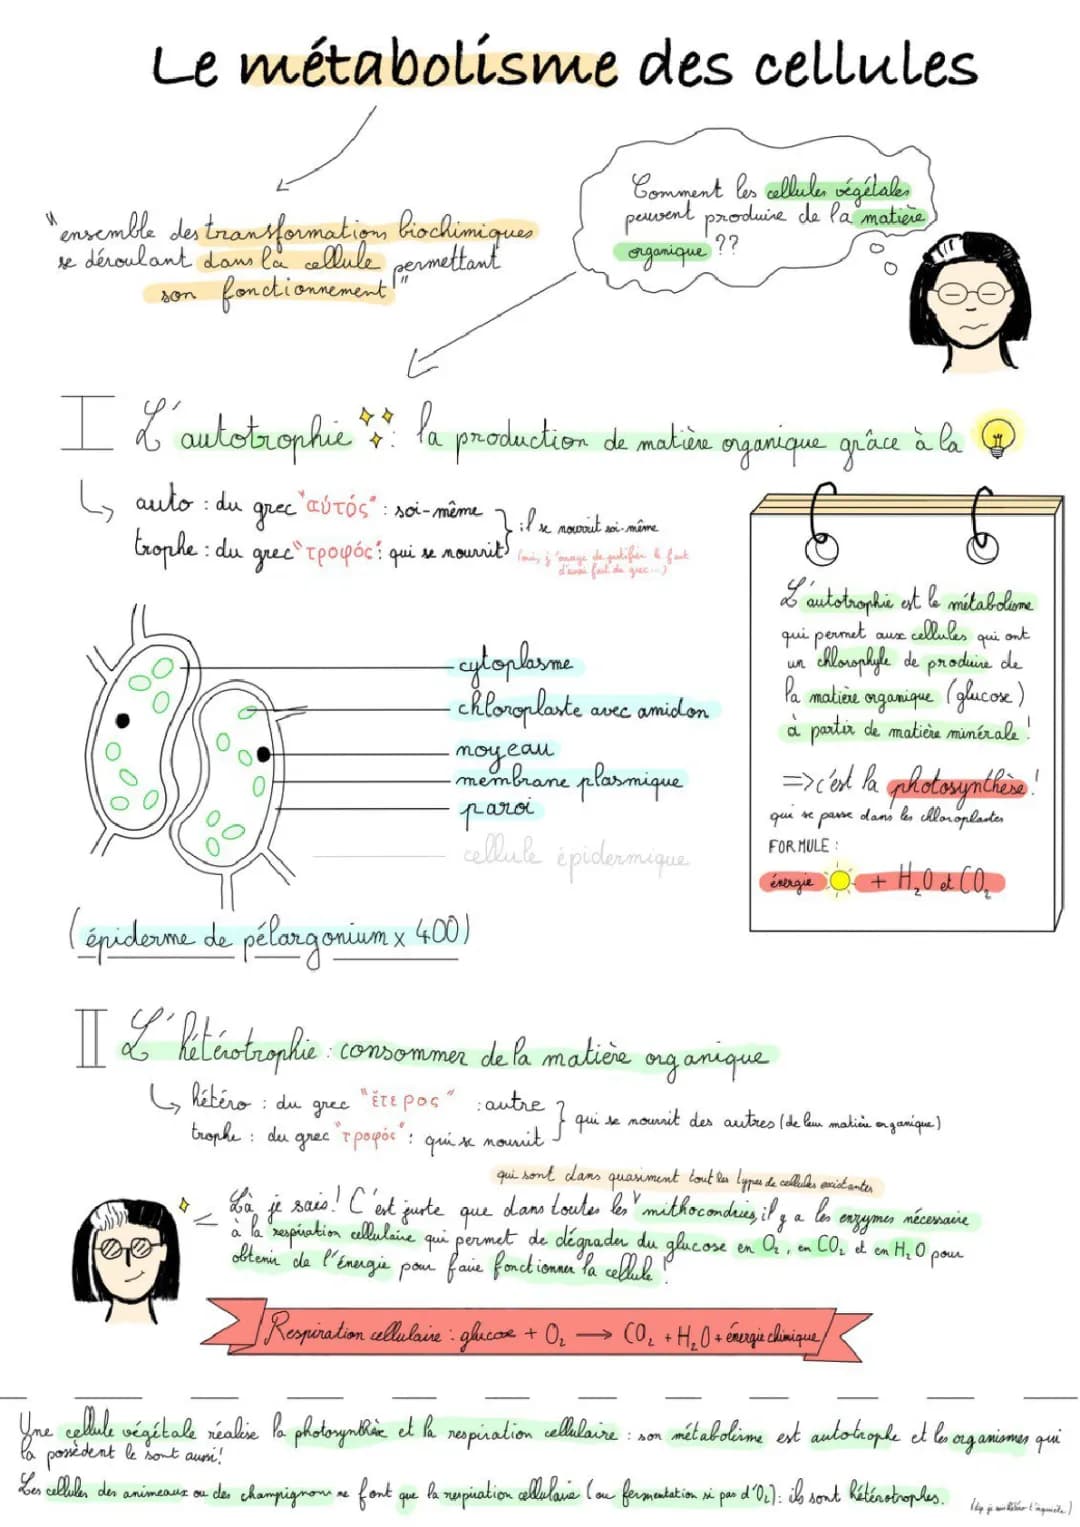 Le métabolisme des cellules
"ensemble des transformations biochimiques
se déroulant dans la cellule permettant
son fonctionnement"
Comment les cellules végétales
peuvent produire de la matière
organique ??
I L'autotrophie : la production de matière organique grâce à la
auto : du grec "αύτός" : soi-même
trophe : du grec "τροφός" : qui se nourrit
: il se nourrit soi-même
L'autotrophie est le métabolisme
qui permet aux cellules qui ont
un chlorophyle de produire de
la matière organique (glucose)
à partir de matière minérale !
=> c'est la photosynthèse !
qui se passe dans les chloroplastes
FORMULE :
énergie + H₂O et CO₂
cytoplasme
chloroplaste avec amidon
noyeau
membrane plasmique
paroi
cellule épidermique
(épiderme de pélargonium x 400)
II L'hétérotrophie : consommer de la matière organique
hétéro : du grec "ἕτερος" : autre
trophe : du grec "τροφός" : qui se nourrit
qui se nourrit des autres (de leur matière organique)
qui sont dans quasiment tout les types de cellules existantes
Là je sais ! C'est juste que dans toutes les mithocondries, il y a les enzymes nécessaire
à la respiration cellulaire qui permet de dégrader du glucose en O₂, en CO₂ et en H₂O pour
obtenir de l'énergie pour faire fonctionner la cellule !
Respiration cellulaire : glucose + O₂ → CO₂ + H₂O + énergie chimique
Une cellule végétale réalise la photosynthèse et la respiration cellulaire : son métabolisme est autotrophe et les organismes qui
la possèdent le sont aussi !
Les cellules des animeaux ou des champignons ne font que la respiration cellulaire (ou fermentation si pas d'O₂) : ils sont hétérotrophes.